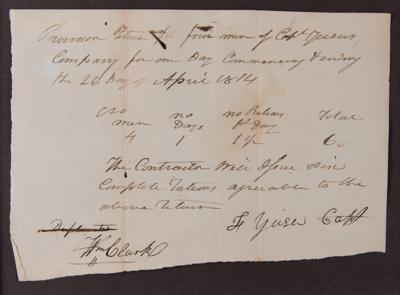 Provision Return for four men of Capt Yeisers
Company for one Day Commencing & ending
the 26 Day of April 1814
no men no Days no Rations pr Day Total
4 1 1½ 6
The Contractor Will Issue Six
Complete Rations agreeable to the
above Return
Duplicate F Yeiser Capt
Wm Clark